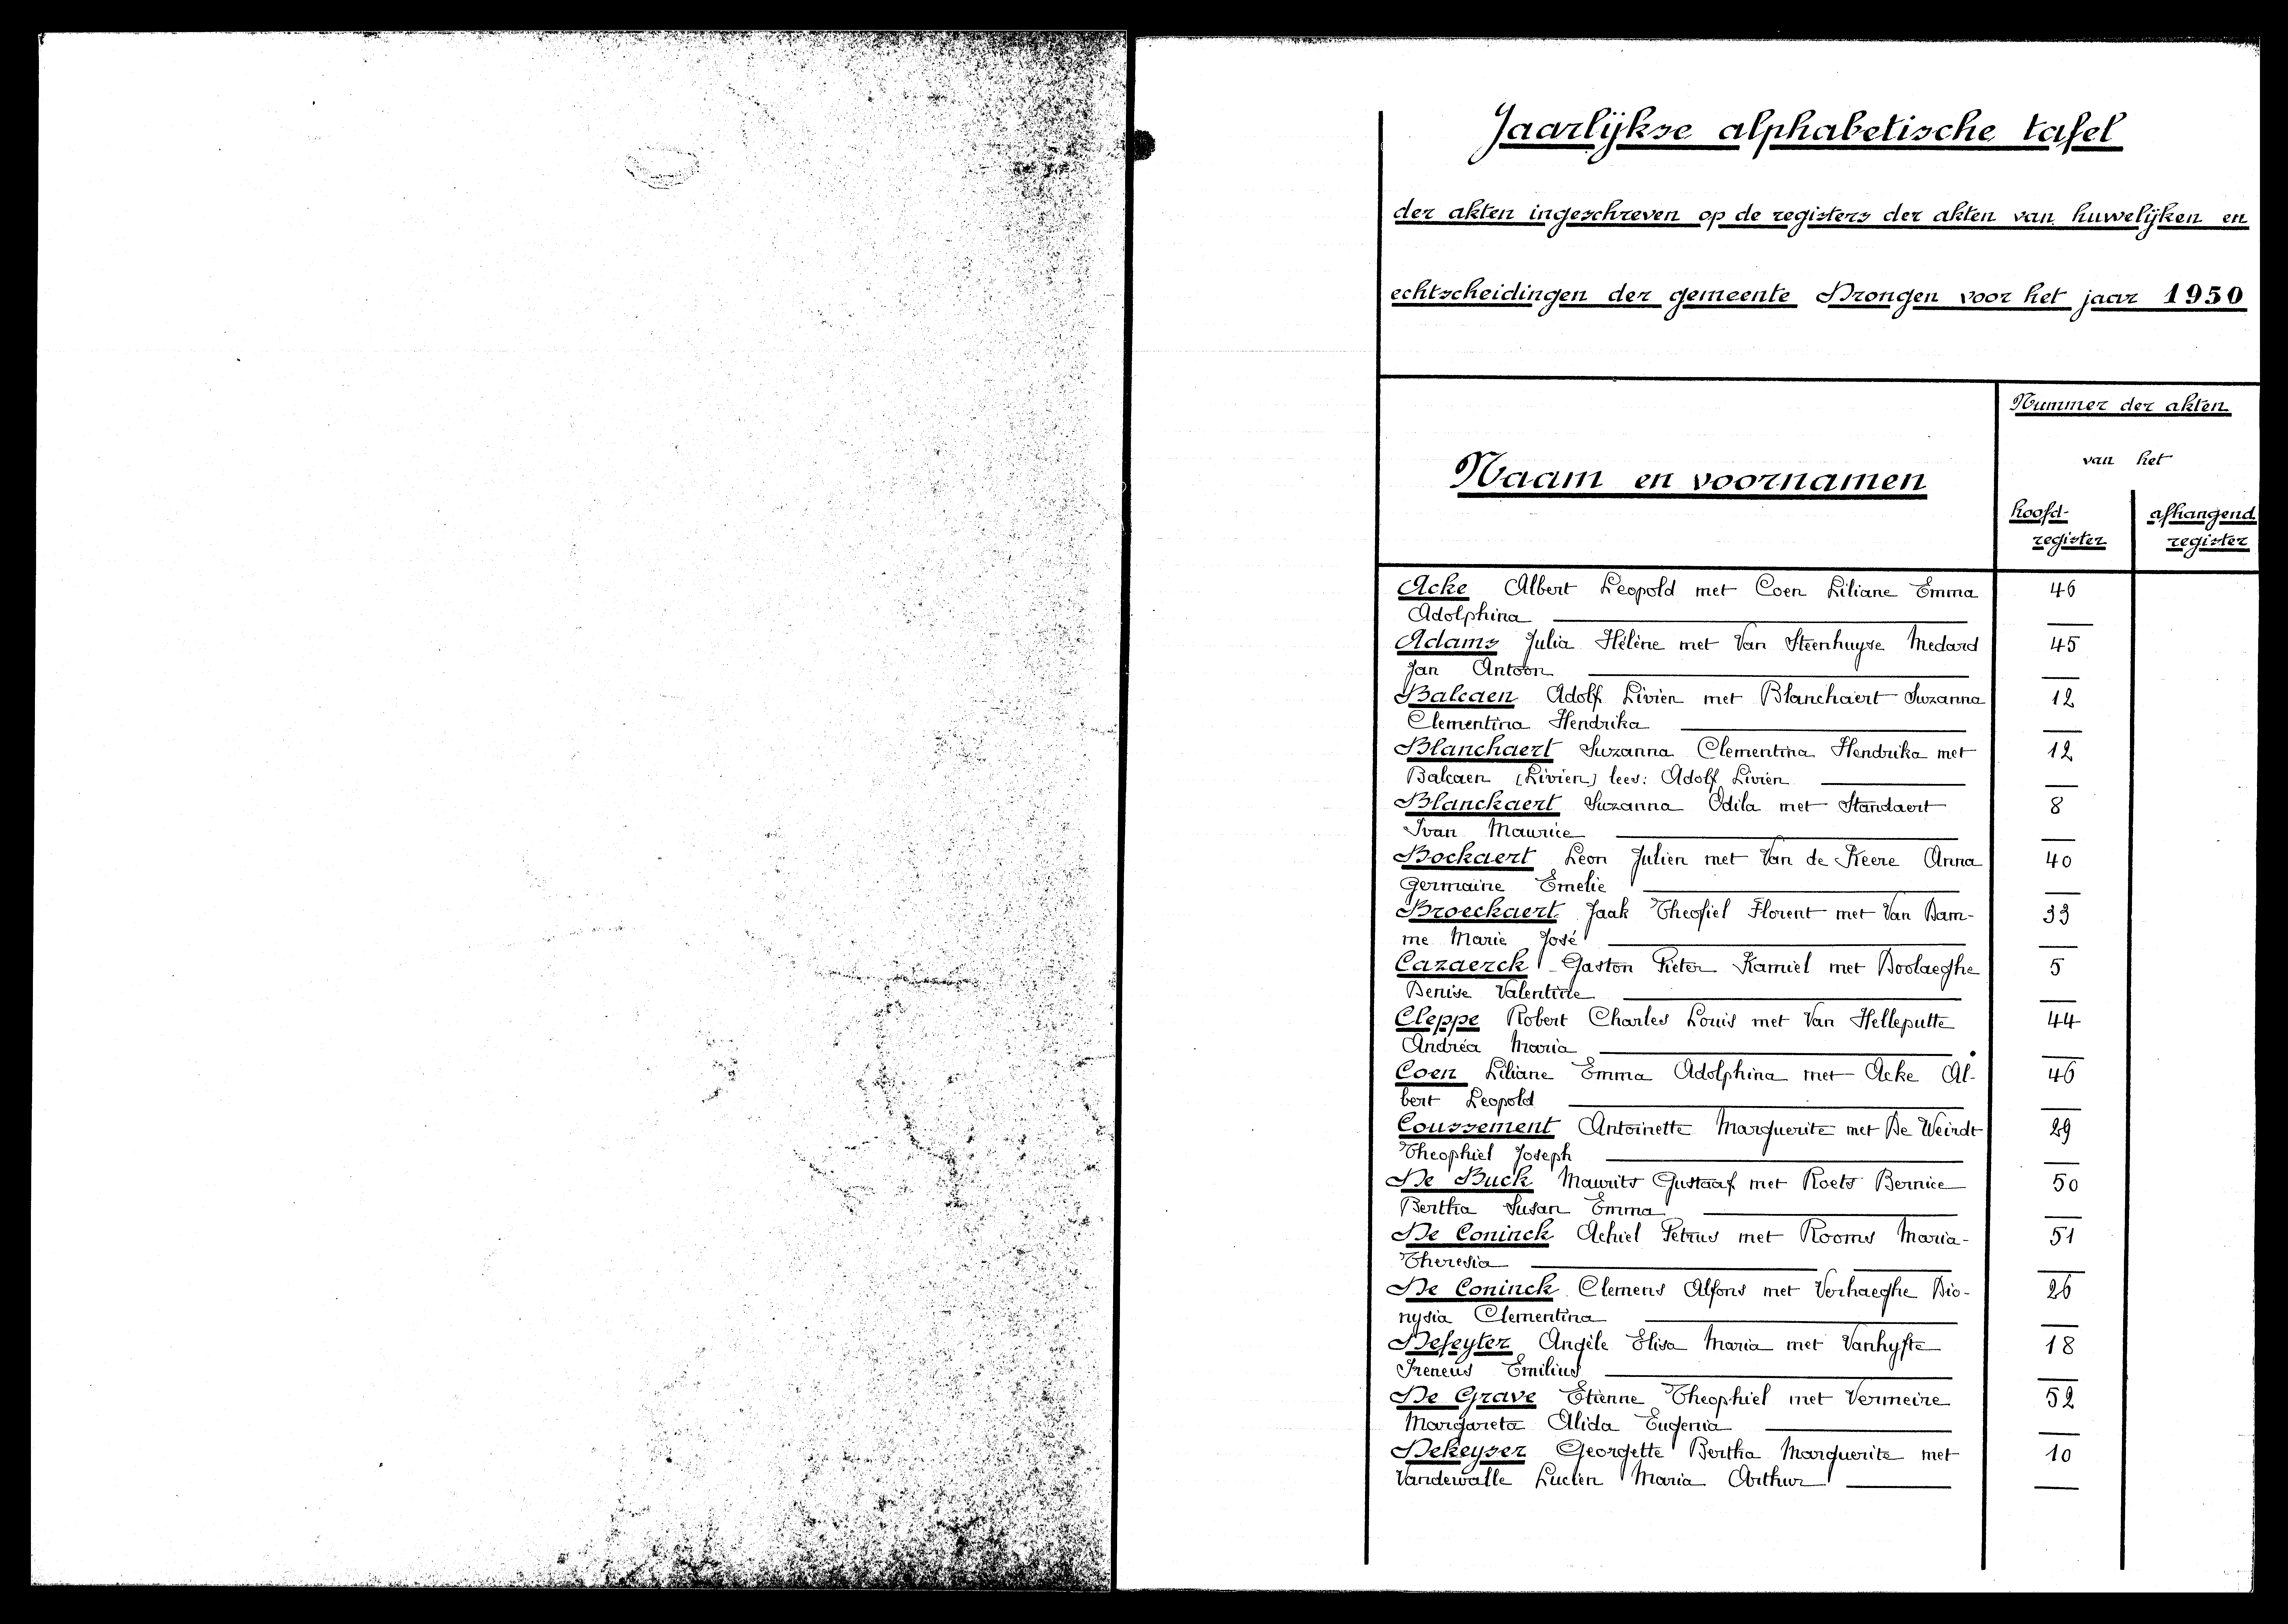 Jaarlijkse alphabetische tafel
der akten ingeschreven op de registers der akten van huwelijken en
echtscheidingen der gemeente Drongen voor het jaar 1950
Nummer der akten
van het
Naam en voornamen
hoofd- afhangend
register register
Acke Albert Leopold met Coen Liliane Emma 46
Adolphina
Adams Julia Hélène met Van Steenhuyse Medard 45
Jan Antoon
Balcaen Adolf Livien met Blanchaert Suzanna 12
Clementina Hendrika
Blanchaert Suzanna Clementina Hendrika met 12
Balcaen (Livien) lees: Adolf Livien
Blanckaert Suzanna Odila met Standaert 8
Ivan Maurice
Bockaert Leon Julien met Van de Keere Anna 40
Germaine Emelie
Broeckaert Jaak Theofiel Florent met Van Dam- 33
me Marie José
Cazaerck Gaston Pieter Kamiel met Doolaeghe 5
Denise Valentine
Cleppe Robert Charles Louis met Van Helleputte 44
Andréa Maria
Coen Liliane Emma Adolphina met Acke Al- 46
bert Leopold
Coussement Antoinette Marguerite met De Weirdt 29
Theophiel Joseph
De Buck Maurits Gustaaf met Roets Bernice 50
Bertha Susan Emma
De Coninck Achiel Petrus met Rooms Maria- 51
Theresia
De Coninck Clemens Alfons met Verhaeghe Dio- 26
nysia Clementina
Defeyter Angèle Elisa Maria met Vanhyfte 18
Ireneus Emilius
De Grave Etienne Theophiel met Vermeire 52
Margareta Alida Eugenia
Dekeyser Georgette Bertha Marguerite met 10
Vandewalle Lucien Maria Arthur